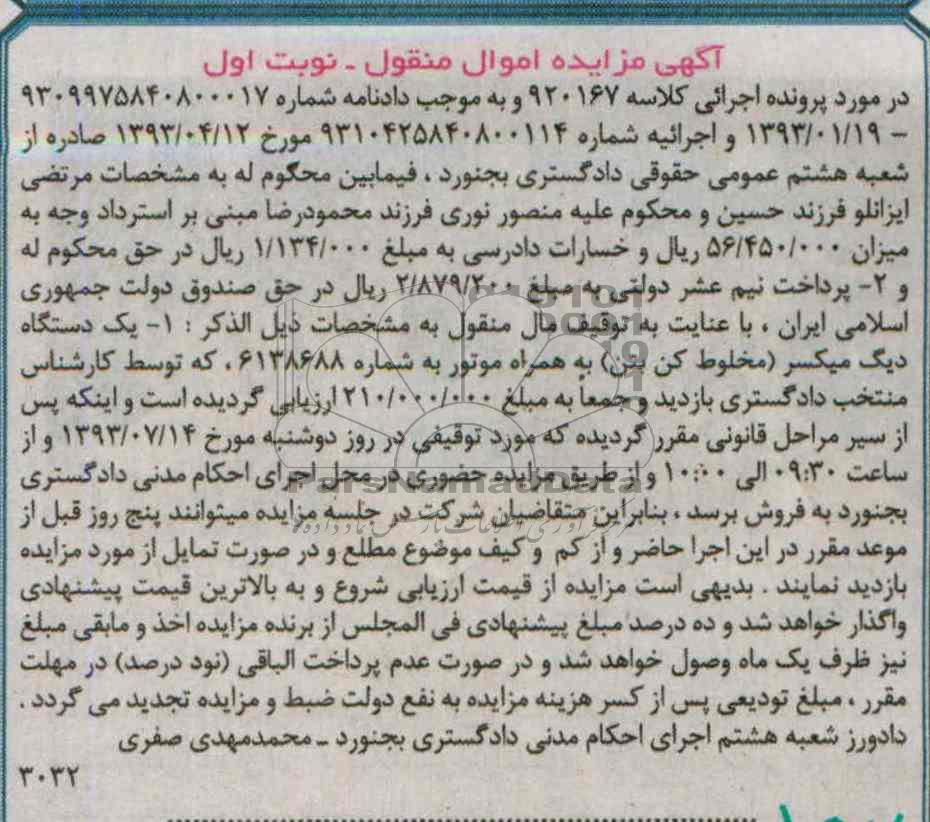 آگهی مزایده اموال منقول ـ نوبت اول
در مورد پرونده اجرائی کلاسه ۹۲۰۱۶۷ و به موجب دادنامه شماره ۹۳۰۹۹۷۵۸۴۰۸۰۰۰۱۷
– ۱۳۹۳/۰۱/۱۹ و اجرائیه شماره ۹۳۱۰۴۲۵۸۴۰۸۰۰۱۱۴ مورخ ۱۳۹۳/۰۴/۱۲ صادره از
شعبه هشتم عمومی حقوقی دادگستری بجنورد ، فیمابین محکوم له به مشخصات مرتضی
ایزانلو فرزند حسین و محکوم علیه منصور نوری فرزند محمودرضا مبنی بر استرداد وجه به
میزان ۵۶/۴۵۰/۰۰۰ ریال و خسارات دادرسی به مبلغ ۱/۱۳۴/۰۰۰ ریال در حق محکوم له
و ۲- پرداخت نیم عشر دولتی به مبلغ ۲/۸۷۹/۲۰۰ ریال در حق صندوق دولت جمهوری
اسلامی ایران ، با عنایت به توقیف مال منقول به مشخصات ذیل الذکر : ۱- یک دستگاه
دیگ میکسر (مخلوط کن بتن) به همراه موتور به شماره ۶۱۳۸۶۸۸ ، که توسط کارشناس
منتخب دادگستری بازدید و جمعاً به مبلغ ۲۱۰/۰۰۰/۰۰۰ ارزیابی گردیده است و اینکه پس
از سیر مراحل قانونی مقرر گردیده که مورد توقیفی در روز دوشنبه مورخ ۱۳۹۳/۰۷/۱۴ و از
ساعت ۰۹:۳۰ الی ۱۰:۰۰ و از طریق مزایده حضوری در محل اجرای احکام مدنی دادگستری
بجنورد به فروش برسد ، بنابراین متقاضیان شرکت در جلسه مزایده میتوانند پنج روز قبل از
موعد مقرر در این اجرا حاضر و از کم و کیف موضوع مطلع و در صورت تمایل از مورد مزایده
بازدید نمایند . بدیهی است مزایده از قیمت ارزیابی شروع و به بالاترین قیمت پیشنهادی
واگذار خواهد شد و ده درصد مبلغ پیشنهادی فی المجلس از برنده مزایده اخذ و مابقی مبلغ
نیز ظرف یک ماه وصول خواهد شد و در صورت عدم پرداخت الباقی (نود درصد) در مهلت
مقرر ، مبلغ تودیعی پس از کسر هزینه مزایده به نفع دولت ضبط و مزایده تجدید می گردد .
دادورز شعبه هشتم اجرای احکام مدنی دادگستری بجنورد ـ محمدمهدی صفری
۳۰۳۲
ParsNamadData